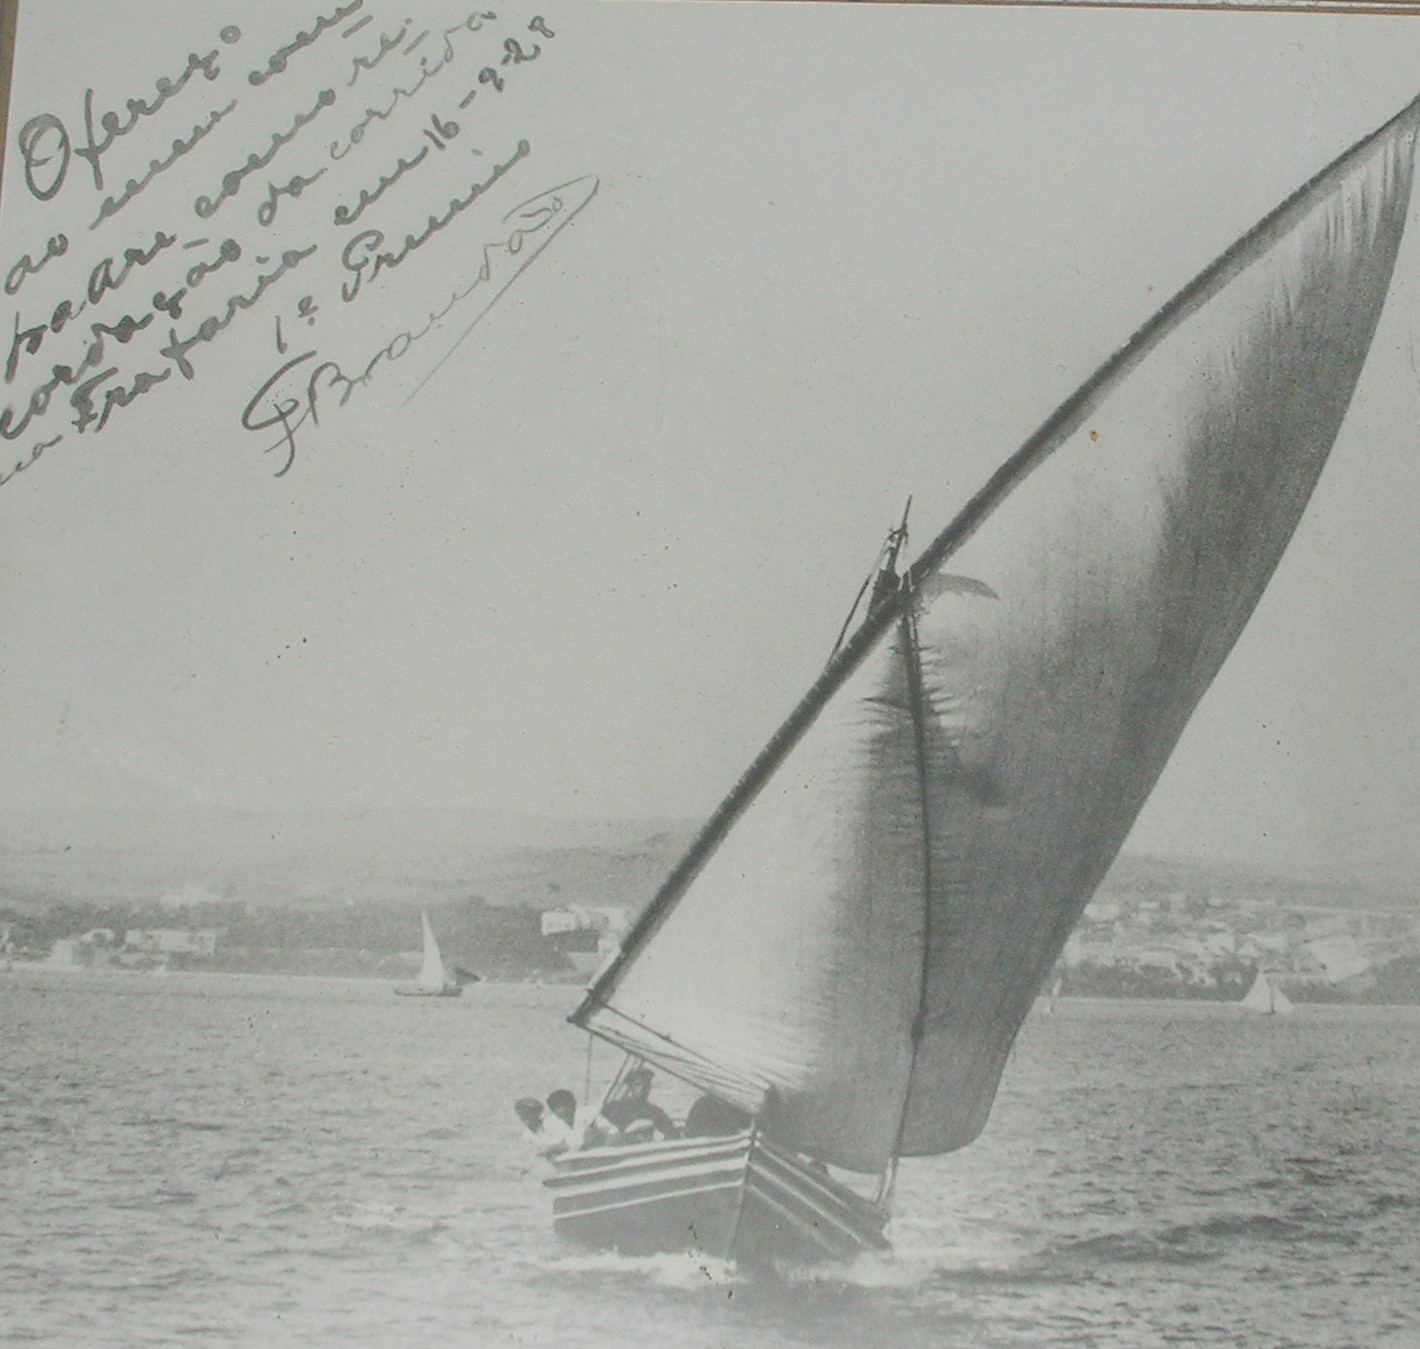 Ofereço
ao meu com
padre como re
cordação da corrida
na Trafaria em 16-9-28
1º Premio
GBrandão